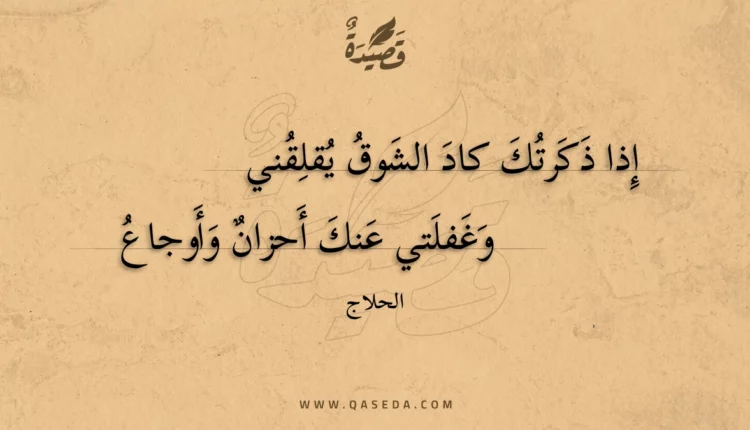 قَصِيدَةٌ
إِذا ذَكَرتُكَ كادَ الشَوقُ يُقلِقُني
وَغَفلَتي عَنكَ أَحزانٌ وَأَوجاعُ
الحلاج
WWW.QASEDA.COM